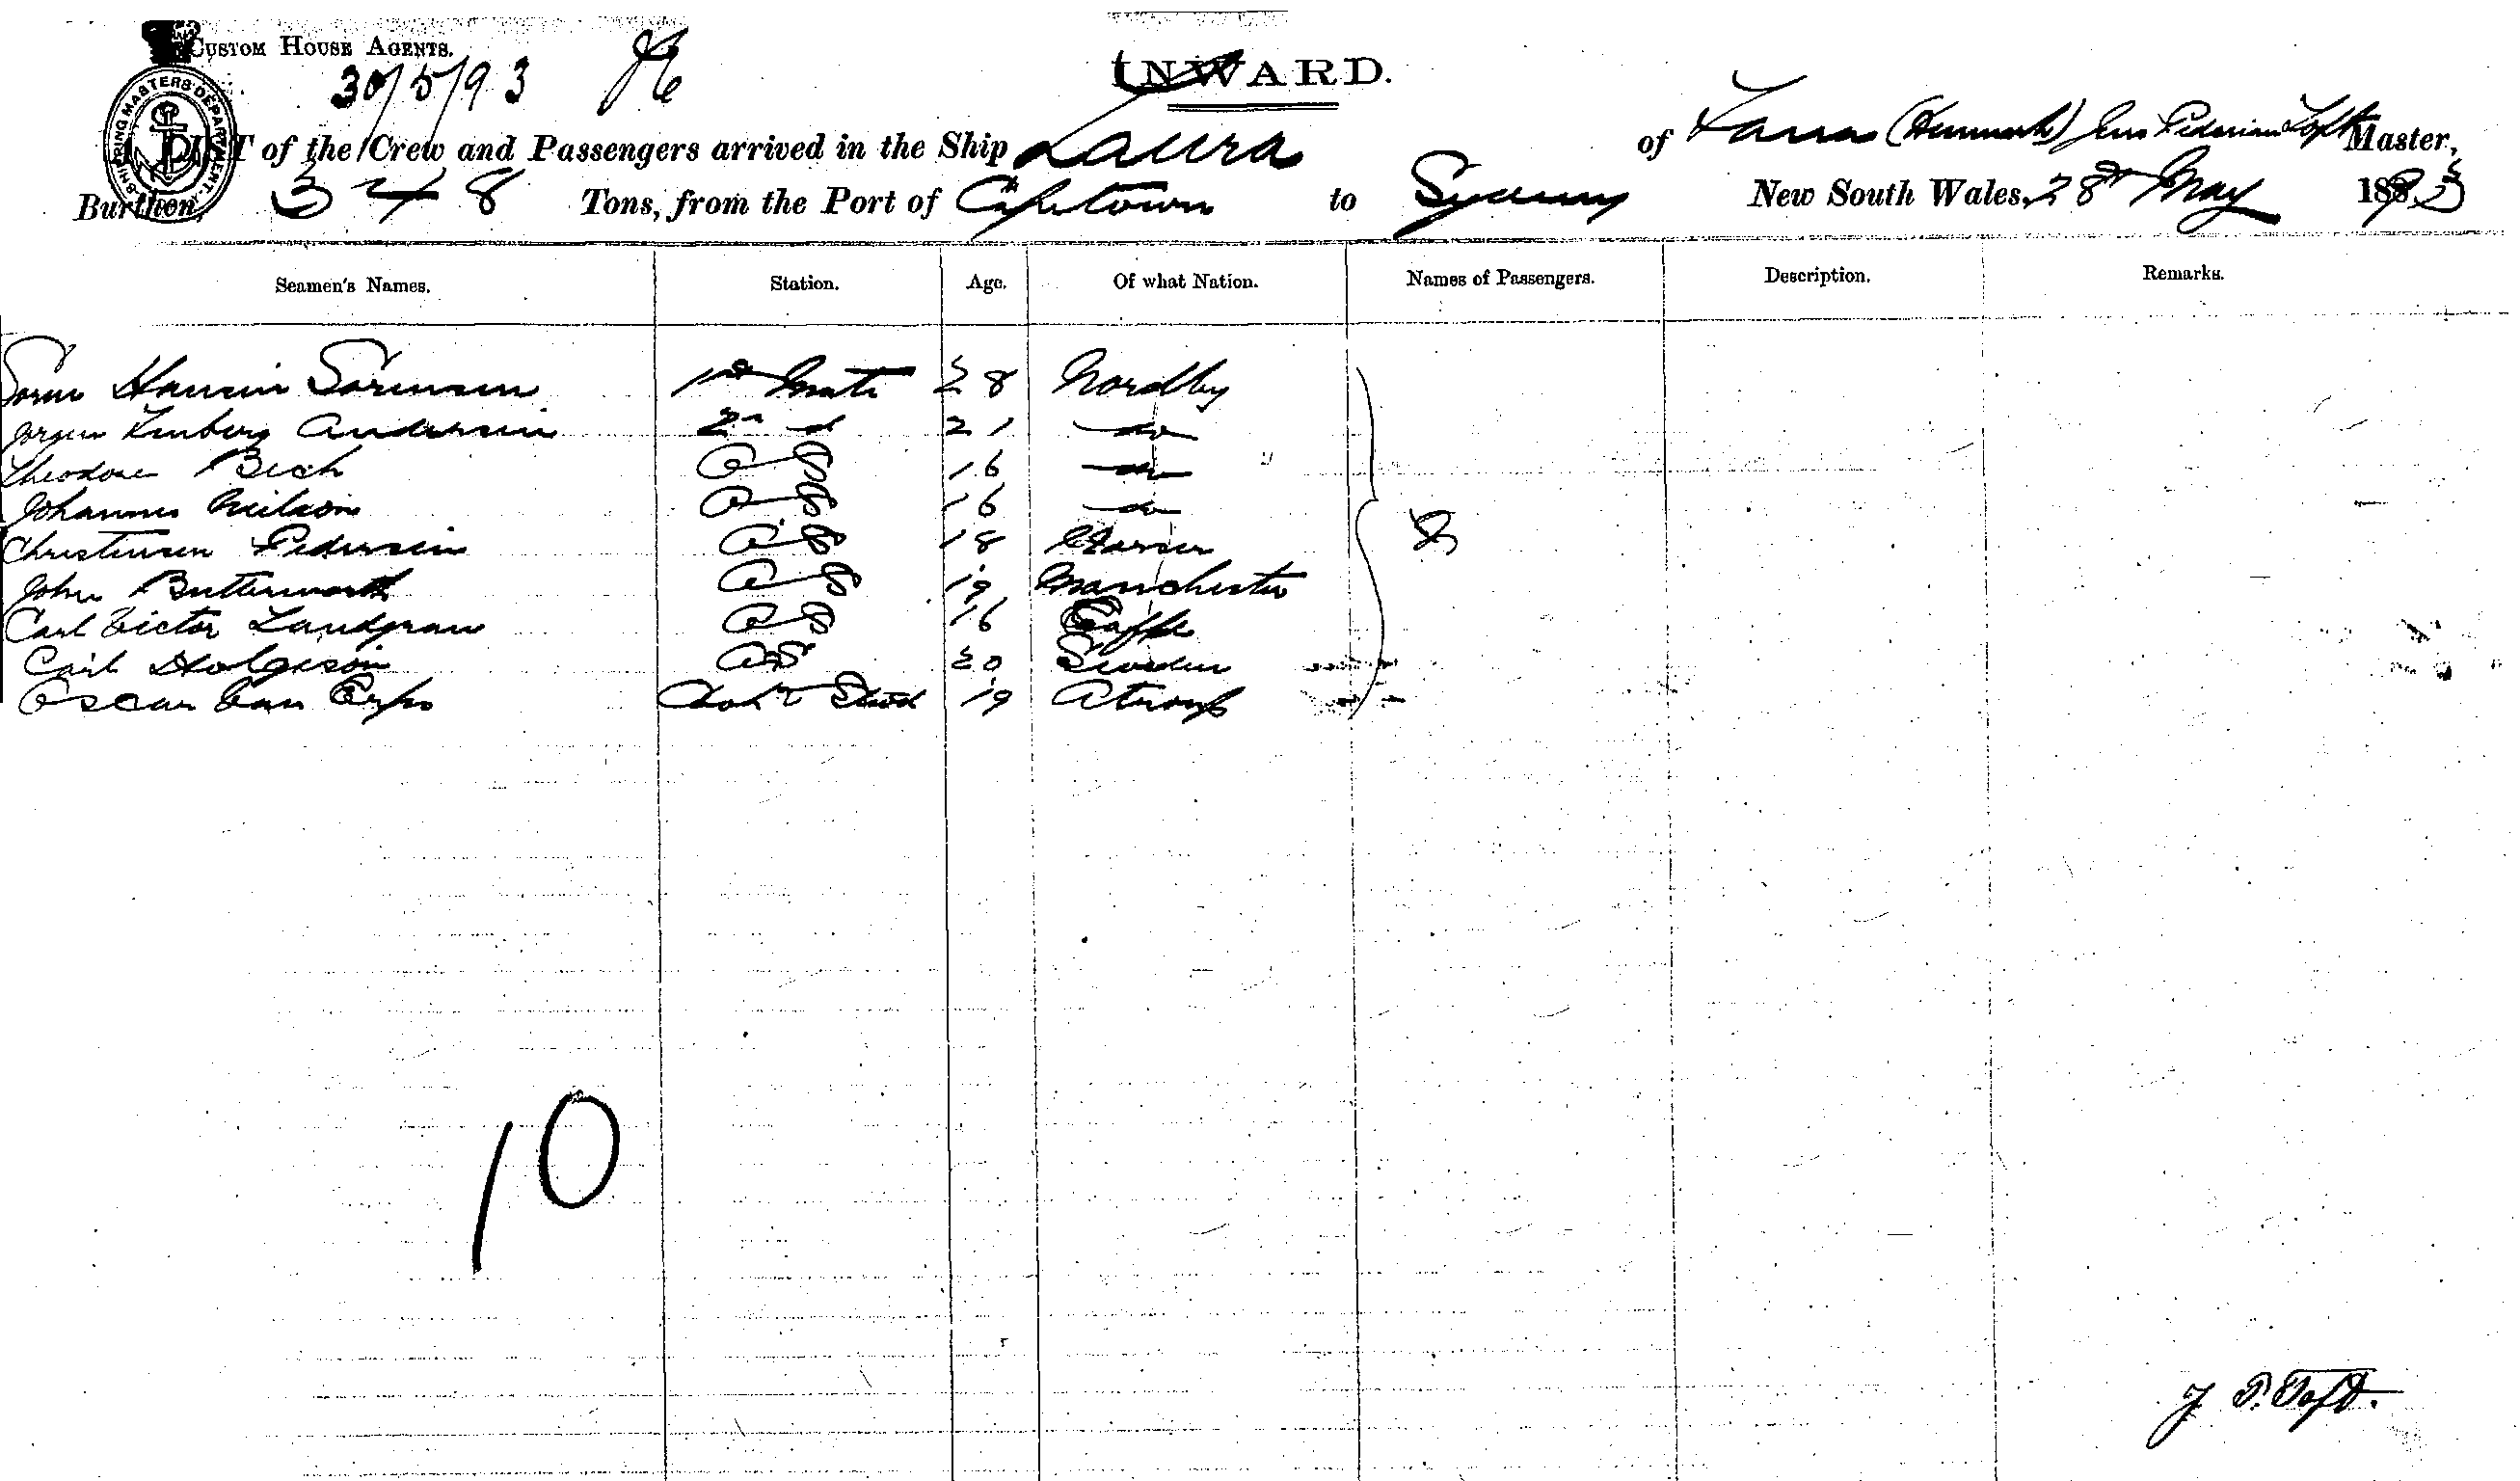 CUSTOM HOUSE AGENTS.
30/5/93
INWARD.
SHIPPING MASTERS DEPARTMENT.
LIST of the Crew and Passengers arrived in the Ship Laura of (Denmark) Jens Master,
Burthen, 348 Tons, from the Port of Capetown to Sydney New South Wales, 28th May 1893
Seamen's Names. Station. Age. Of what Nation. Names of Passengers. Description. Remarks.
Soren Hansen Sorensen 1st Mate 28 Nordby
Jorgen Andersen 2nd d 21 do
Theodore Bech OS 16 do
Johannes Neilson OS 16 do
Christensen Pedersen AS 18
John Butterworth OS 19 Manchester
Carl Victor Landgran OS 16
Carl Holgeson AS 20 Sweden
Oscar Van Erps Stwd 19
10
J P. Toft.